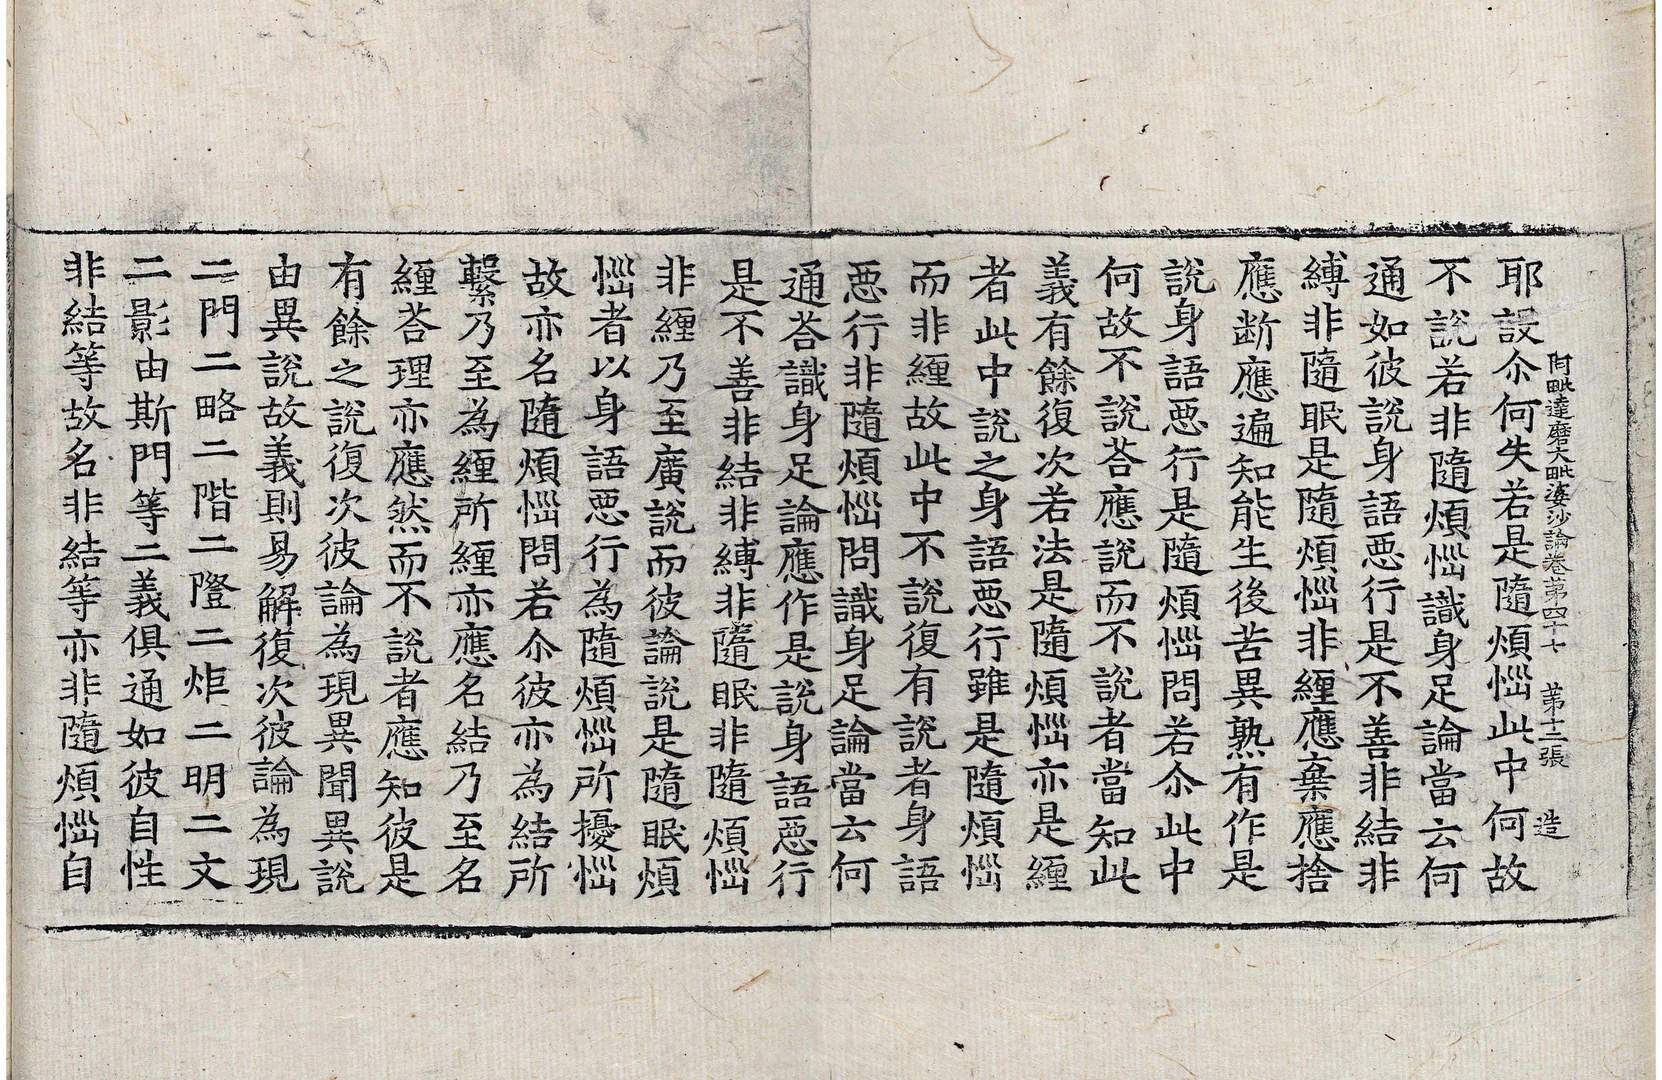 阿毗達磨大毗婆沙論卷第四十七　第十二張　造
耶設尒何失若是隨煩惱此中何故
不說若非隨煩惱識身足論當云何
通如彼說身語惡行是不善非結非
縛非隨眠是隨煩惱非纏應棄應捨
應断應遍知能生後苦異熟有作是
說身語惡行是隨煩惱問若尒此中
何故不說荅應說而不說者當知此
義有餘復次若法是隨煩惱亦是纏
者此中說之身語惡行雖是隨煩惱
而非纏故此中不說復有說者身語
惡行非隨煩惱問識身足論當云何
通荅識身足論應作是說身語惡行
是不善非結非縛非隨眠非隨煩惱
非纏乃至廣說而彼論說是隨眠煩
惱者以身語惡行為隨煩惱所擾惱
故亦名隨煩惱問若尒彼亦為結所
繫乃至為纏所纏亦應名結乃至名
纏荅理亦應然而不說者應知彼是
有餘之說復次彼論為現異聞異說
由異說故義則易解復次彼論為現
二門二略二階二隥二炬二明二文
二影由斯門等二義俱通如彼自性
非結等故名非結等亦非隨煩惱自